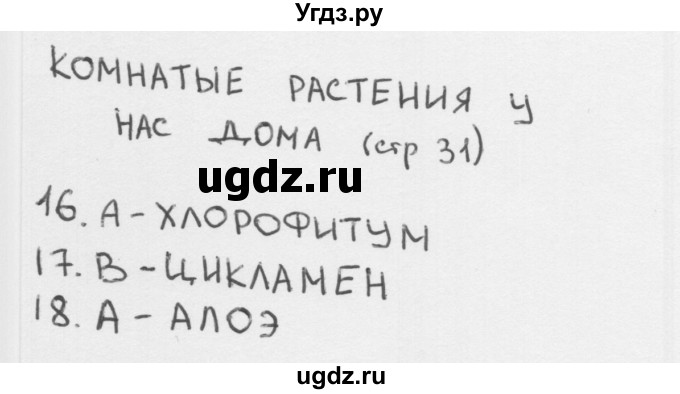 Угдз.ру
КОМНАТЫЕ РАСТЕНИЯ У
НАС ДОМА (стр 31)
ugdz.ru
16. А - ХЛОРОФИТУМ
17. В - ЦИКЛАМЕН
18. А - АЛОЭ
ugdz.ru